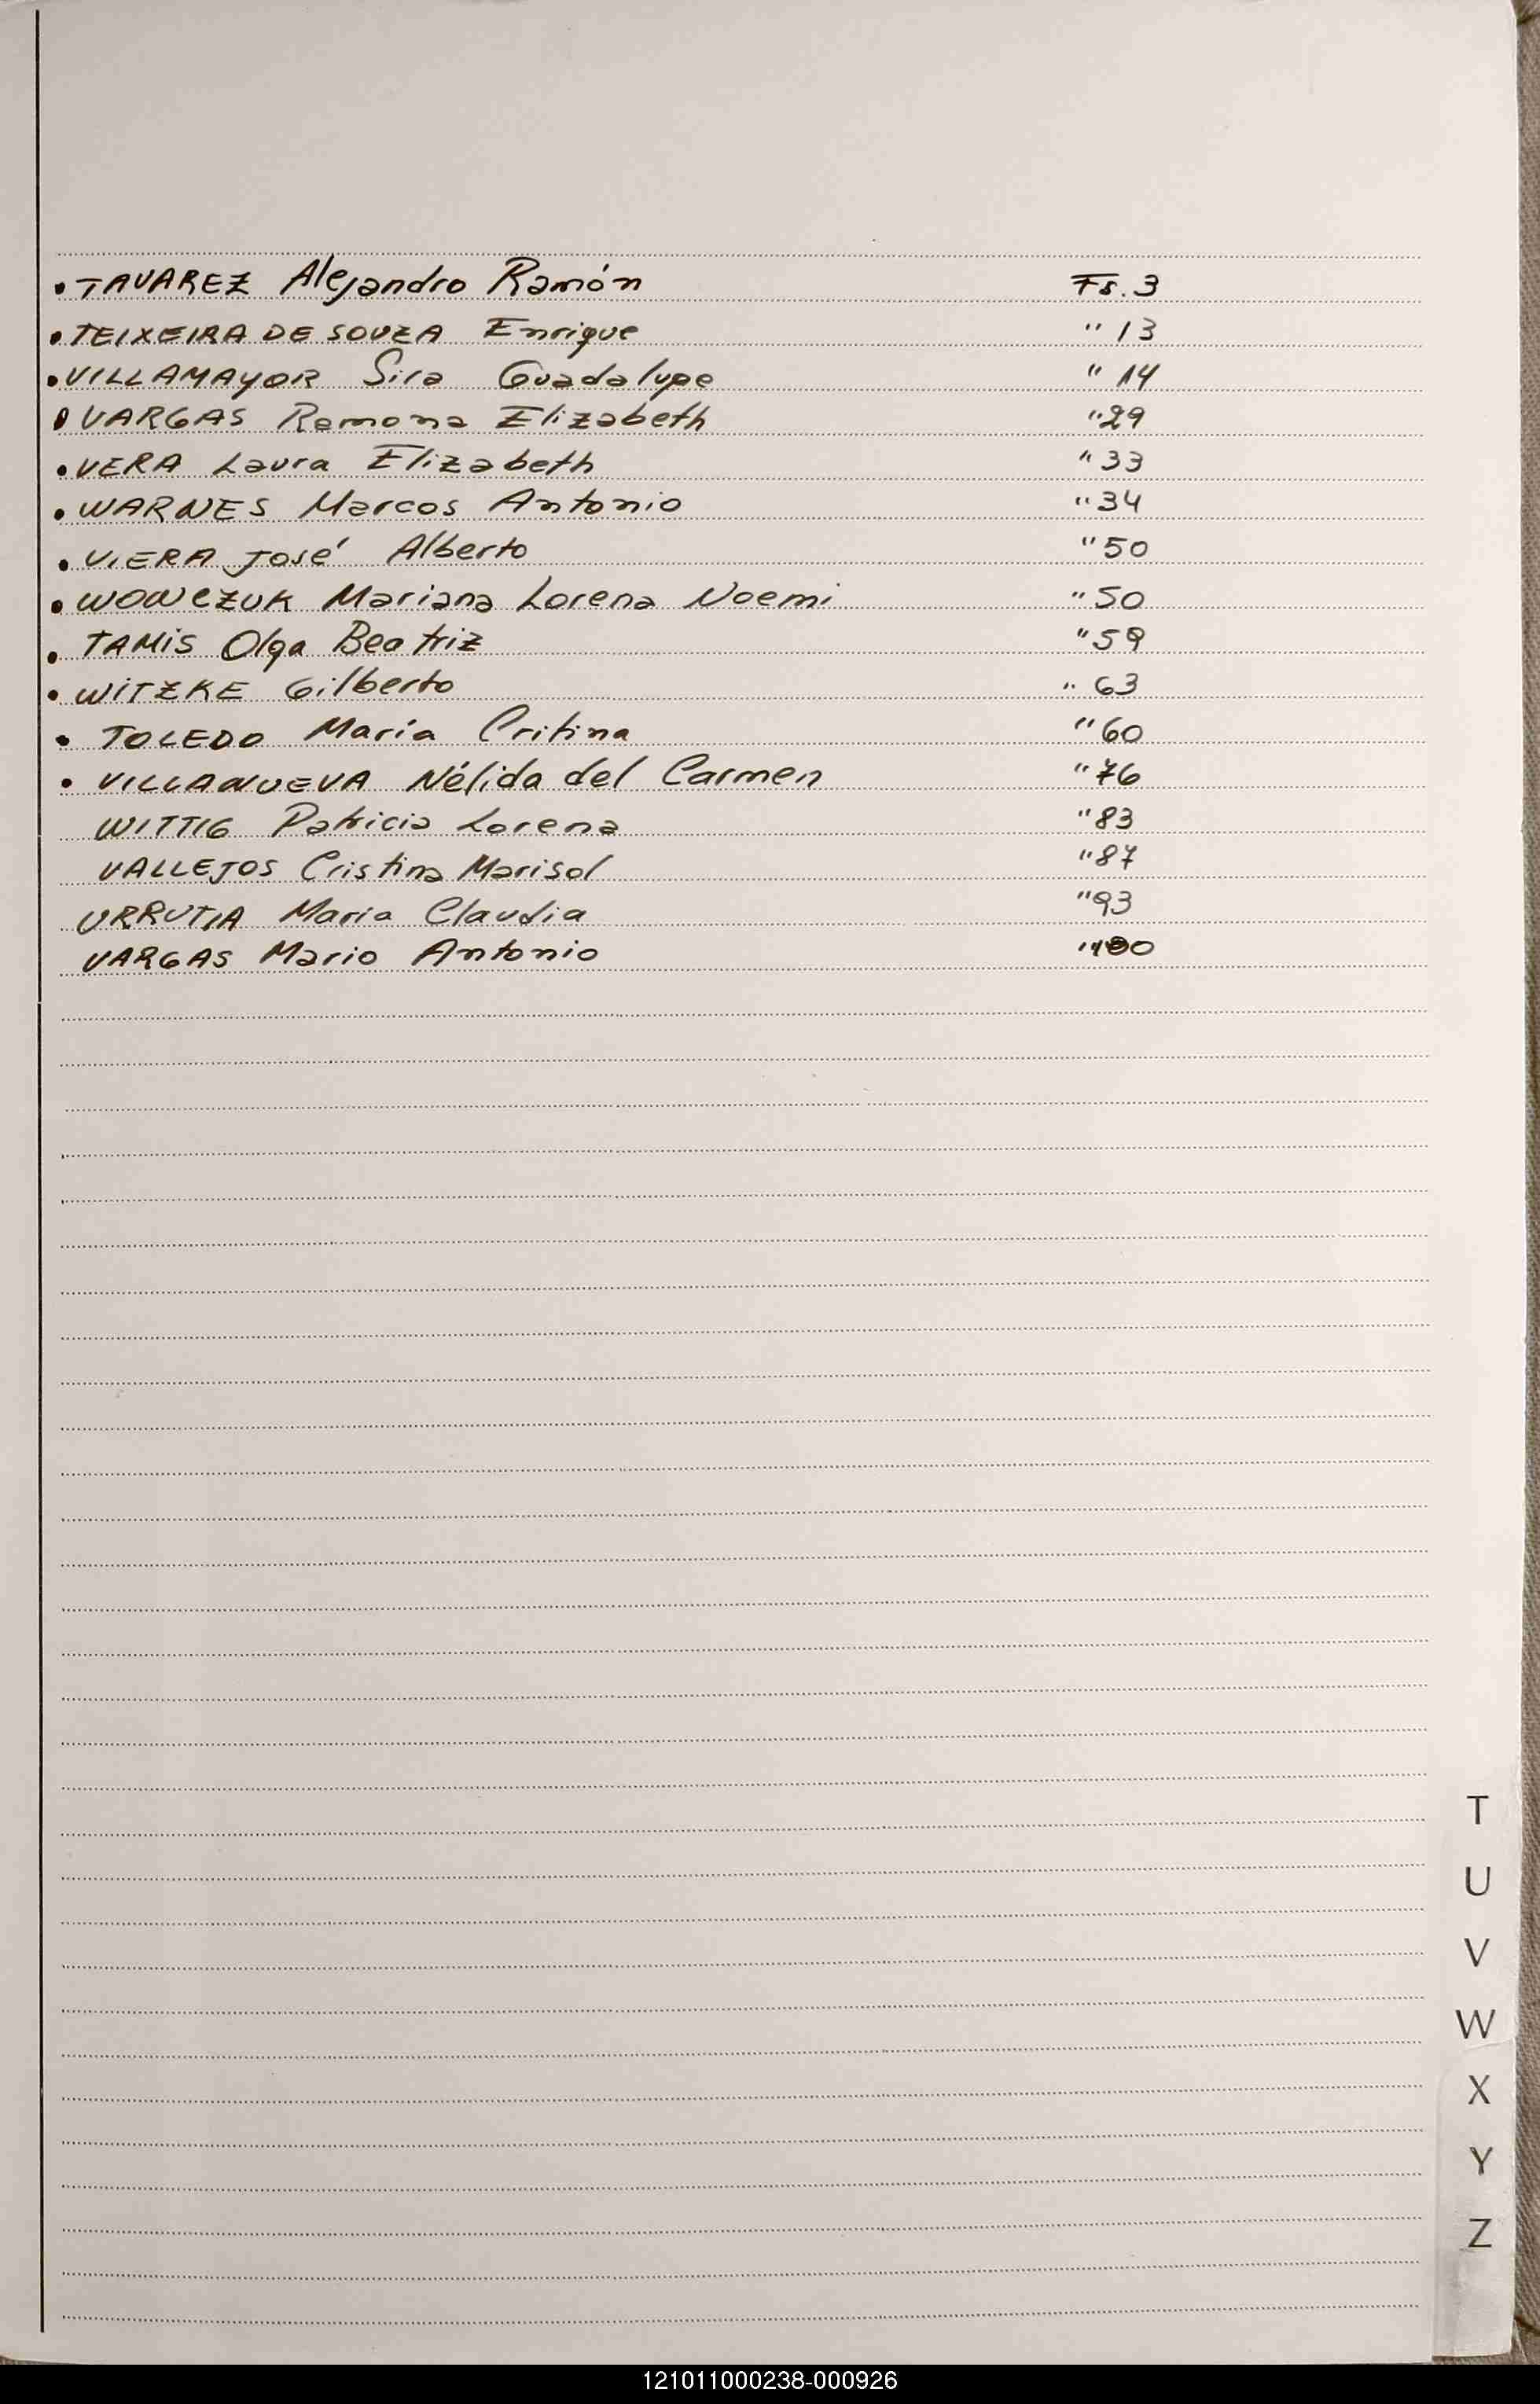 • TAVAREZ Alejandro Ramón Fs. 3
• TEIXEIRA DE SOUZA Enrique " 13
• VILLAMAYOR Sira Guadalupe " 14
• VARGAS Ramona Elizabeth " 29
• VERA Laura Elizabeth " 33
• WARNES Marcos Antonio " 34
• VIERA José Alberto " 50
• WOWCZUK Mariana Lorena Noemi " 50
• TAMIS Olga Beatriz " 59
• WITZKE Gilberto " 63
• TOLEDO María Critina " 60
• VILLANUEVA Nélida del Carmen " 76
WITTIG Patricia Lorena " 83
VALLEJOS Cristina Marisol " 87
URRUTIA Maria Claudia " 93
VARGAS Mario Antonio " 100
T
U
V
W
X
Y
Z
121011000238-000926